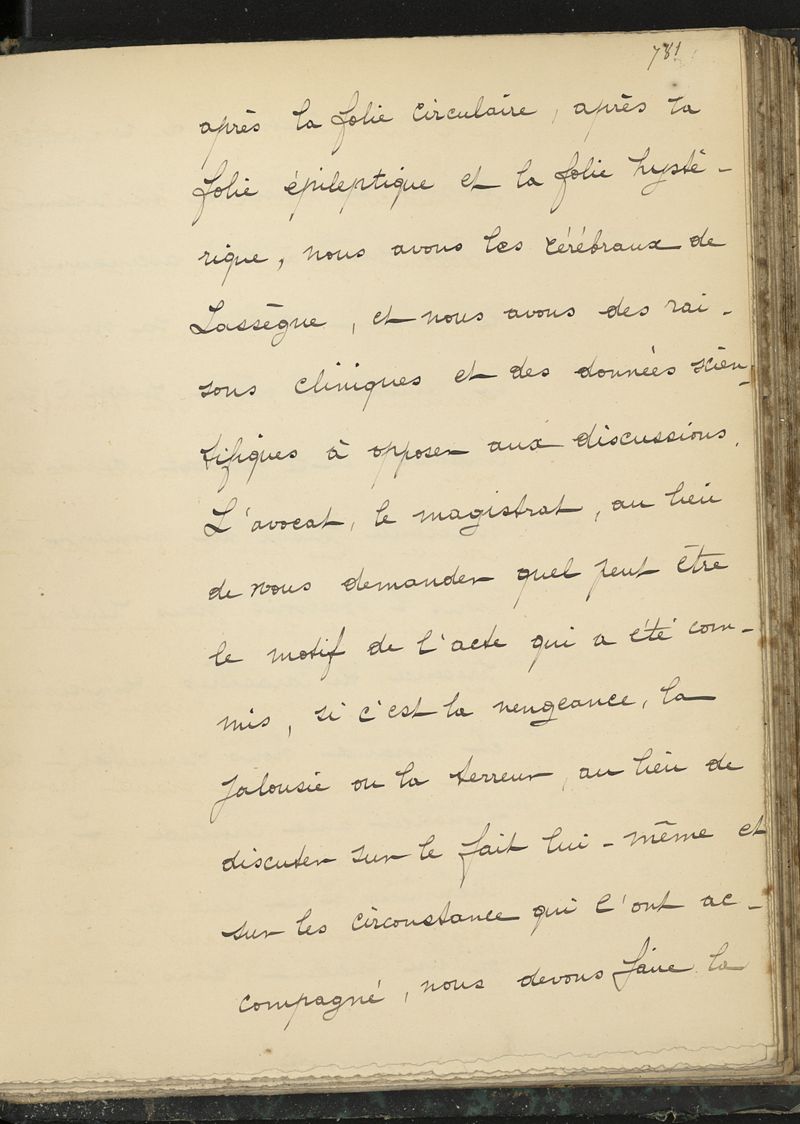 781
après la folie circulaire, après la
folie épileptique et la folie hysté-
rique, nous avons les cérébraux de
Lassègue, et nous avons des rai-
sons cliniques et des données scien-
tifiques à opposer aux discussions.
L'avocat, le magistrat, au lieu
de vous demander quel peut être
le motif de l'acte qui a été com-
mis, si c'est la vengeance, la
jalousie ou la terreur, au lieu de
discuter sur le fait lui-même et
sur les circonstance qui l'ont ac-
compagné, nous devons faire la